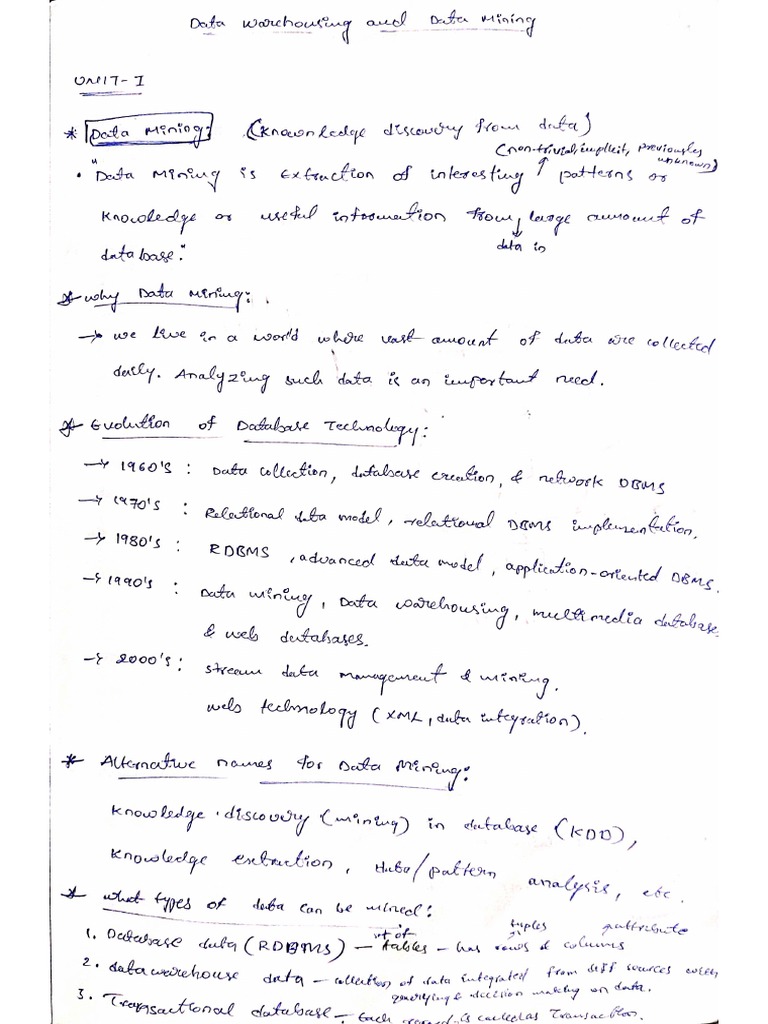 Data Warehousing and Data Mining
UNIT-I
* Data Mining: (Knowledge discovery from data)
(non-trivial, implicit, previously
unknown)
• "Data Mining is Extraction of interesting ↑ patterns or
Knowledge or useful information from large amount of
data in
database."
* Why Data Mining:
→ We live in a world where vast amount of data are collected
daily. Analyzing such data is an important need.
* Evolution of Database Technology:
→ 1960's : Data collection, database creation, & network DBMS
→ 1970's : Relational data model, relational DBMS implementation.
→ 1980's : RDBMS, advanced data model, application-oriented DBMS.
→ 1990's : Data mining, Data warehousing, multimedia database
& web databases.
→ 2000's : stream data management & mining.
web technology (XML, data integration).
* Alternative names for Data Mining:
Knowledge discovery (mining) in database (KDD),
Knowledge extraction, data/pattern analysis, etc.
* What types of data can be mined:
tuples attribute
set of
1. Database data (RDBMS) – tables – has rows & columns
2. data warehouse data – collection of data integrated from diff sources with
querying & decision making on data.
3. Transactional database – Each record is called as Transaction.